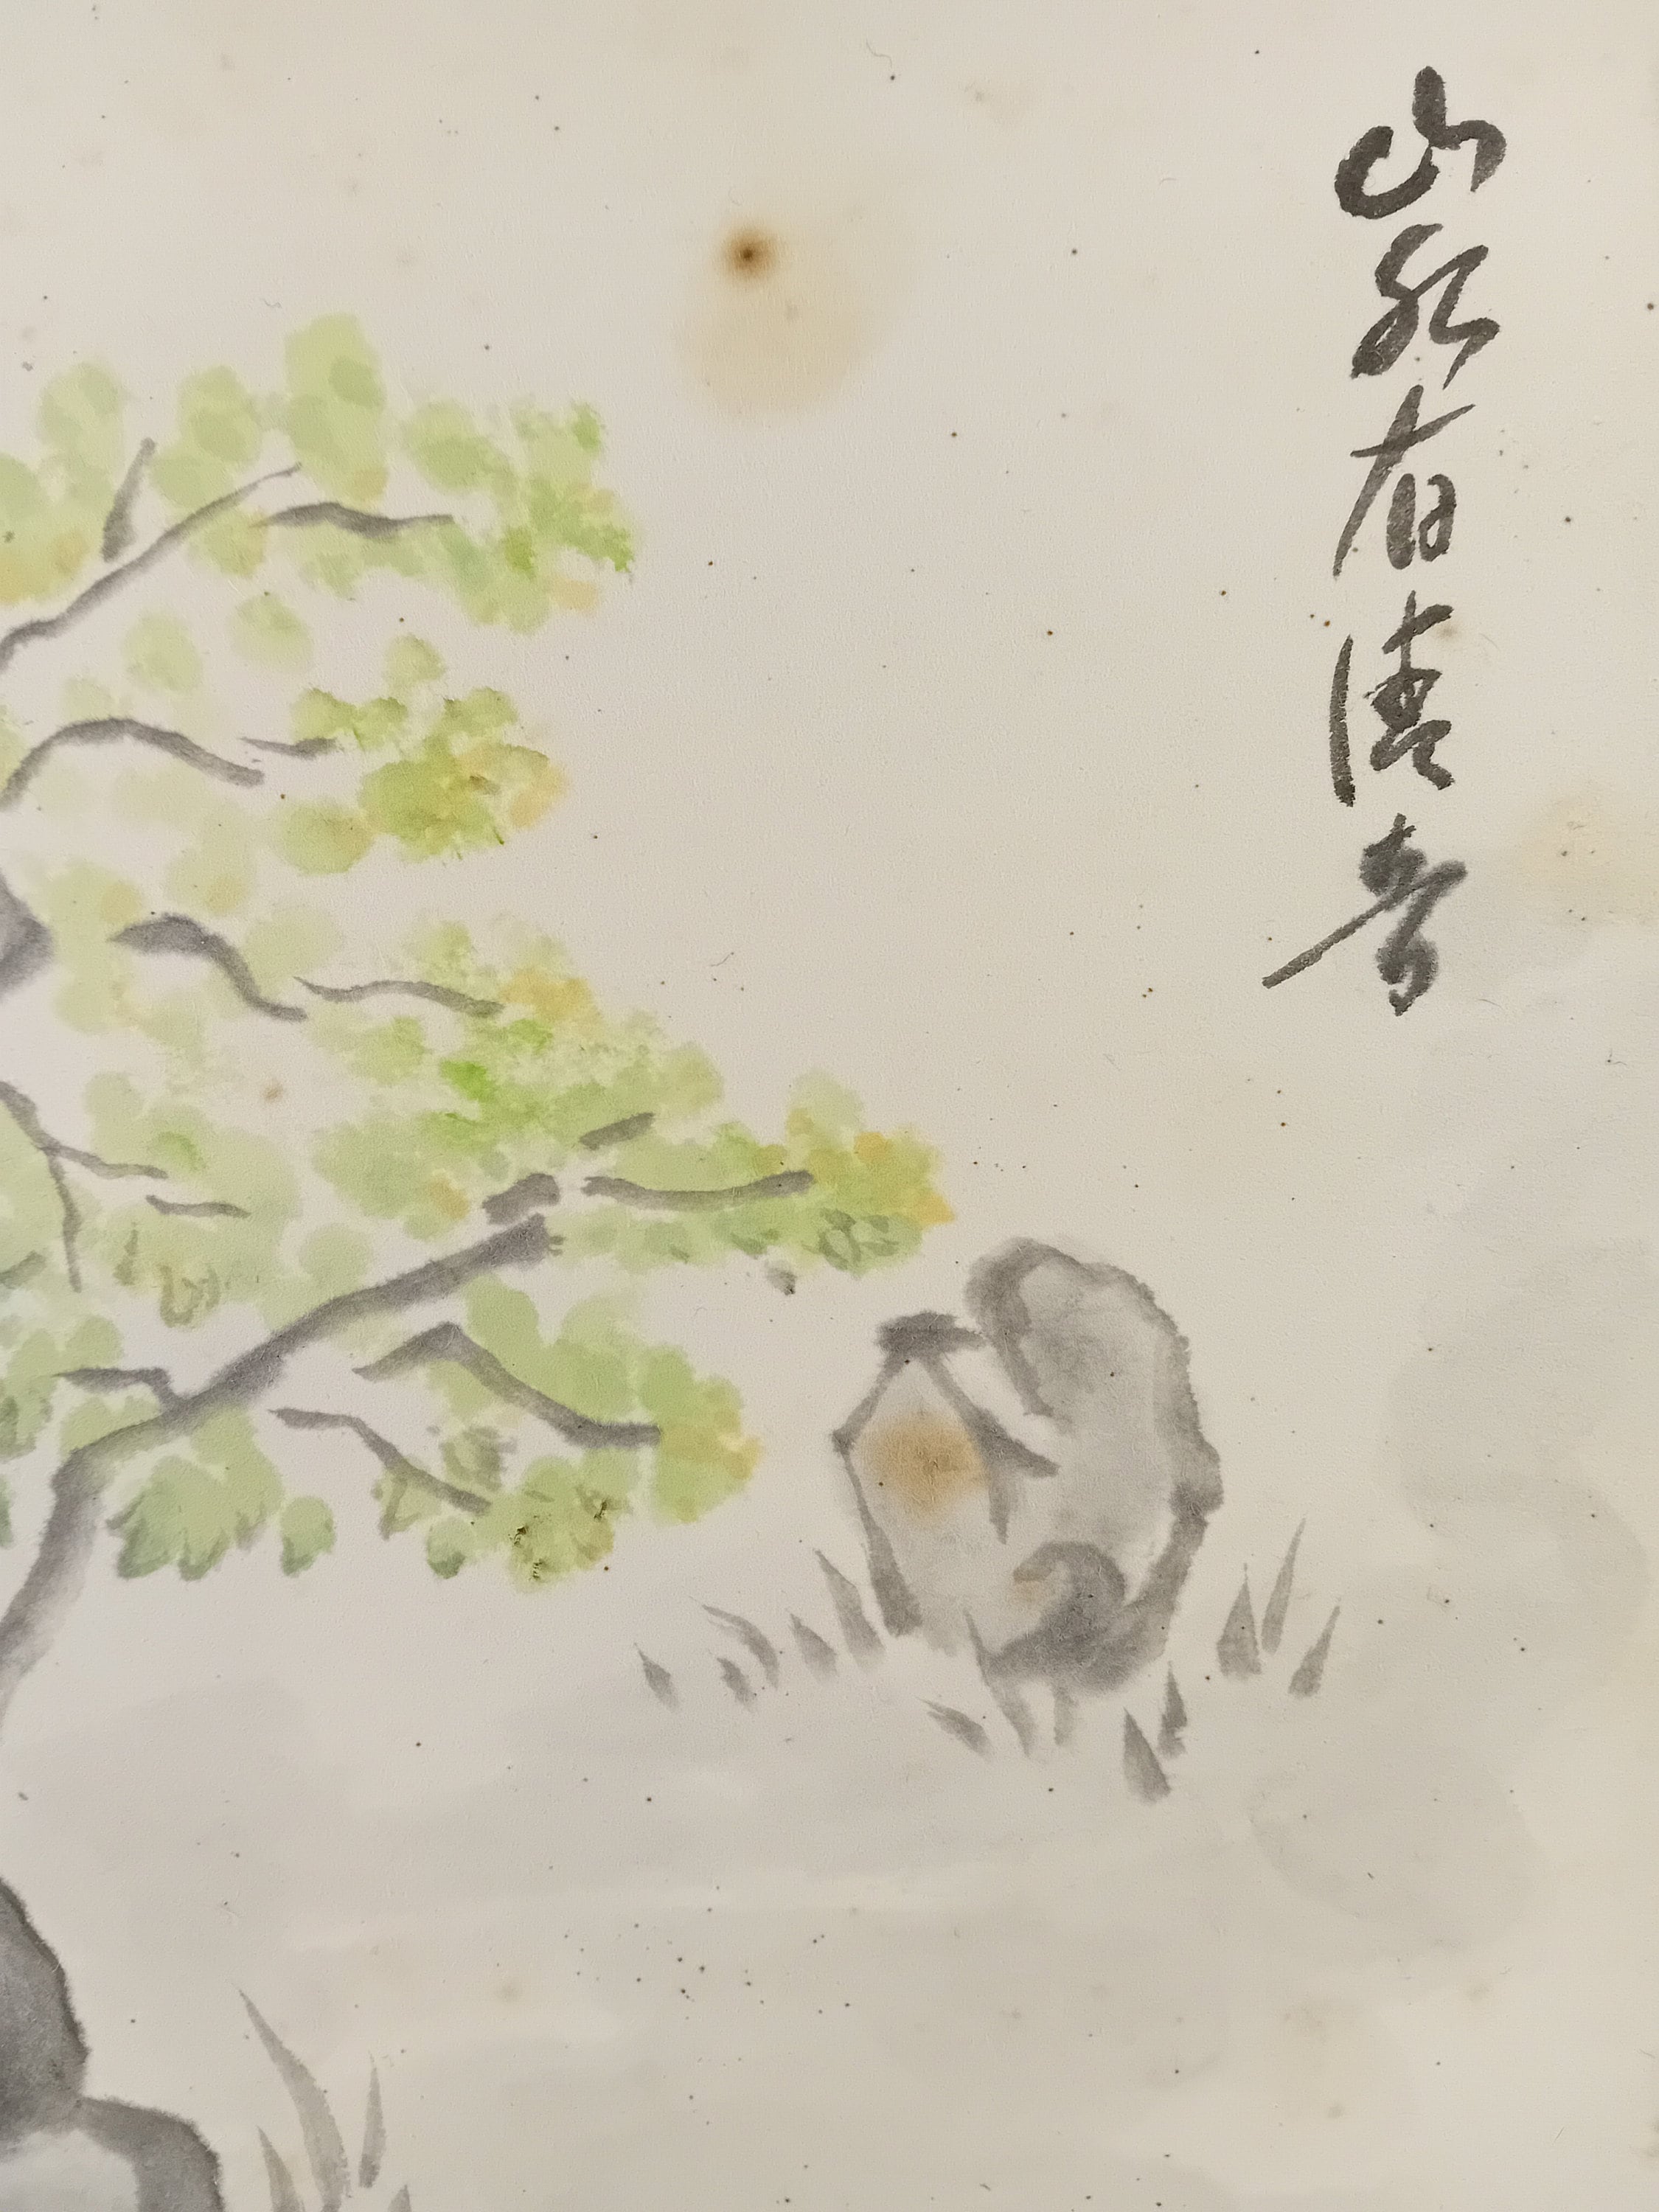 山水有清音